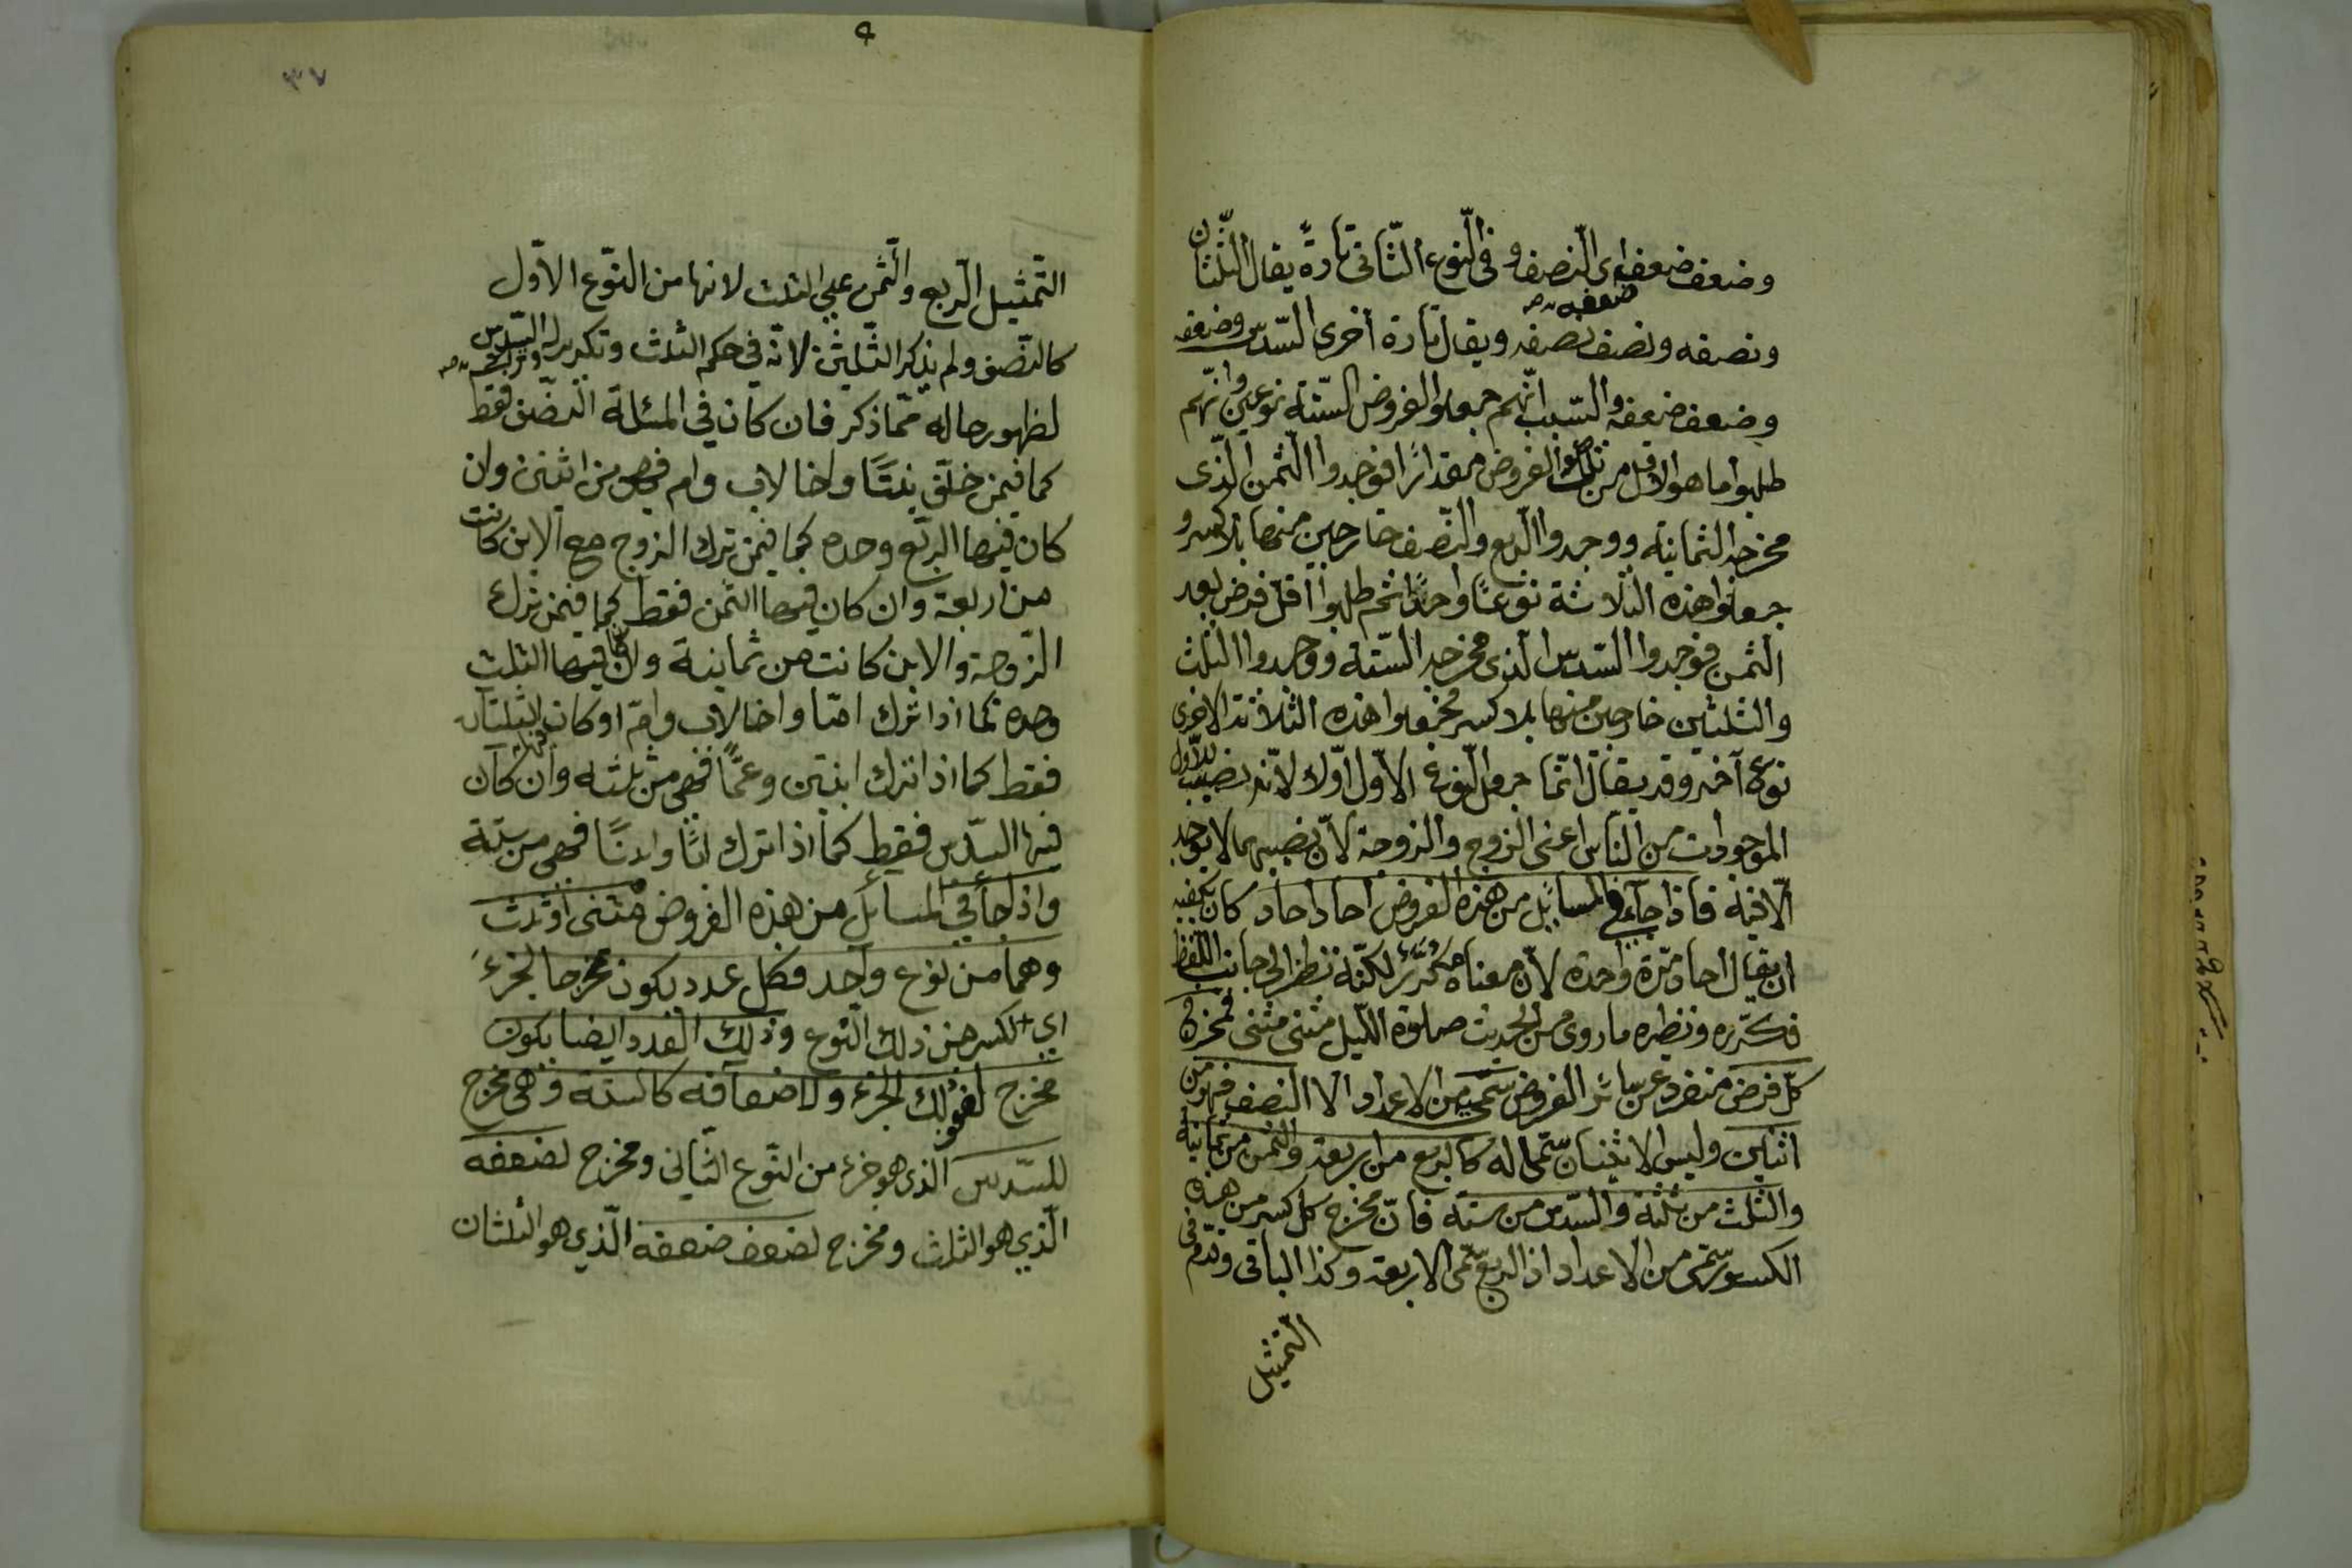 وضعف ضعفه اى النّصف و فى النّوع الثّانى تارةً يقال الثّلثان
ضعفه صح
ونصفه ونصف نصفه ويقال تارة أخرى السّدس وضعفه
وضعف ضعفه والسّبب انّهم جعلوا الفروض السّتّة نوعين وانّهم
طلبوا ما هو الاقل من تلك الفروض مقدارًا فوجدوا الثّمن الّذى
مخرجه الثمانية ووجدوا الرّبع والنّصف خارجين منها بلا كسر و
جعلوا هذه الثلاثة نوعًا واحدًا ثم طلبوا اقل فرض بعد
الثمن فوجدوا السّدس الذى مخرجه السّتة ووجدوا الثلث
والثلثين خارجين منها بلا كسر فجعلوا هذه الثلاثة الاخرى
نوعا آخر وقد يقال انّما جعل النّوع الاوّل اوّلا لانّه نصيب للاوّل
الموجودات من النّاس اعنى الزوج والزوجة لانّ نصيبهما لا يوجد
الّا فيه فاذا جاء فى المسائل من هذه الفروض احاد احاد كان يكفيه
ان يقال احاد مرّة واحدة لانّ معناه مكرّر لكنّه نظر الى جانب اللّفظ
فكرّره ونظيره ما روى من الحديث صلوة اللّيل مثنى مثنى فمخرج
كلّ فرض منفرد عن سائر الفروض سميّه من الاعداد الا النصف فهو من
اثنين وليس الاثنان سمّيا له كالربع من اربعة والثمن من ثمانية
والثلث من ثلثة والسّدس من ستة فانّ مخرج كل كسر من هذه
الكسور سمّيه من الاعداد اذ الربع سمّى الاربعة وكذا الباقى وقدّم فى
التمثيل
٣٧
٩
التّمثيل الرّبع والثّمن على الثلث لانها من النّوع الاوّل
كالنّصف ولم يذكر الثّلثين لانّه فى حكم الثلث وتكريره السّدس
لظهور حاله ممّا ذكر فان كان فى المسئلة النّصف فقط
كما فيمن خلّف بنتًا واخا لاب وام فهى من اثنين وان
كان فيها الربع وحده كما فيمن ترك الزوج مع الابن كانت
من اربعة وان كان فيها الثمن فقط كما فيمن ترك
الزّوجة والابن كانت من ثمانية وان كان فيها الثلث
وحده كما اذا ترك امّا واخا لاب وامّ او كان فيها الثلثان
فقط كما اذا ترك ابنتين وعمًّا فهى من ثلثة وان كان
فيها السّدس فقط كما اذا ترك ابًا وابنًا فهى من ستة
واذا جاء فى المسائل من هذه الفروض مثنى او ثلث
وهما من نوع واحد فكل عدد يكون مخرجا لجزء
اى لكسر من ذلك النّوع وذلك العدد ايضا يكون
مخرج لضعف ذلك الجزء ولاضعافه كالستة فهى مخرج
للسّدس الّذى هو جزء من النّوع الثّانى ومخرج لضعفه
الّذى هو الثلث ومخرج لضعف ضعفه الّذى هو الثلثان